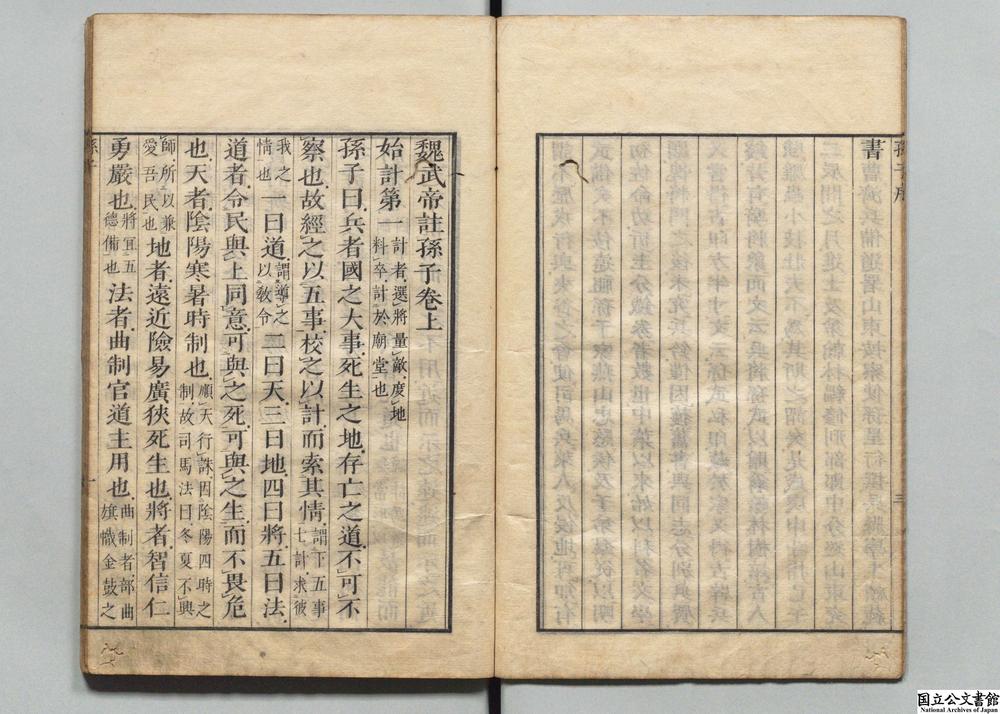 孫子序
三
書
魏武帝註孫子卷上
始計第一計者選將量敵度地料卒計於廟堂也
孫子曰兵者國之大事死生之地存亡之道不可不
察也故經之以五事校之以計而索其情謂下五事七計求彼
我之情也一曰道謂導之以敎令二曰天三曰地四曰將五曰法
道者令民與上同意可與之死可與之生而不畏危
也天者陰陽寒暑時制也順天行誅因陰陽四時之制故司馬法曰冬夏不興
師所以兼愛吾民也地者遠近險易廣狹死生也將者智信仁
勇嚴也將宜五德備也法者曲制官道主用也曲制者部曲旗幟金鼓之
孫子
一
国立公文書館
National Archives of Japan